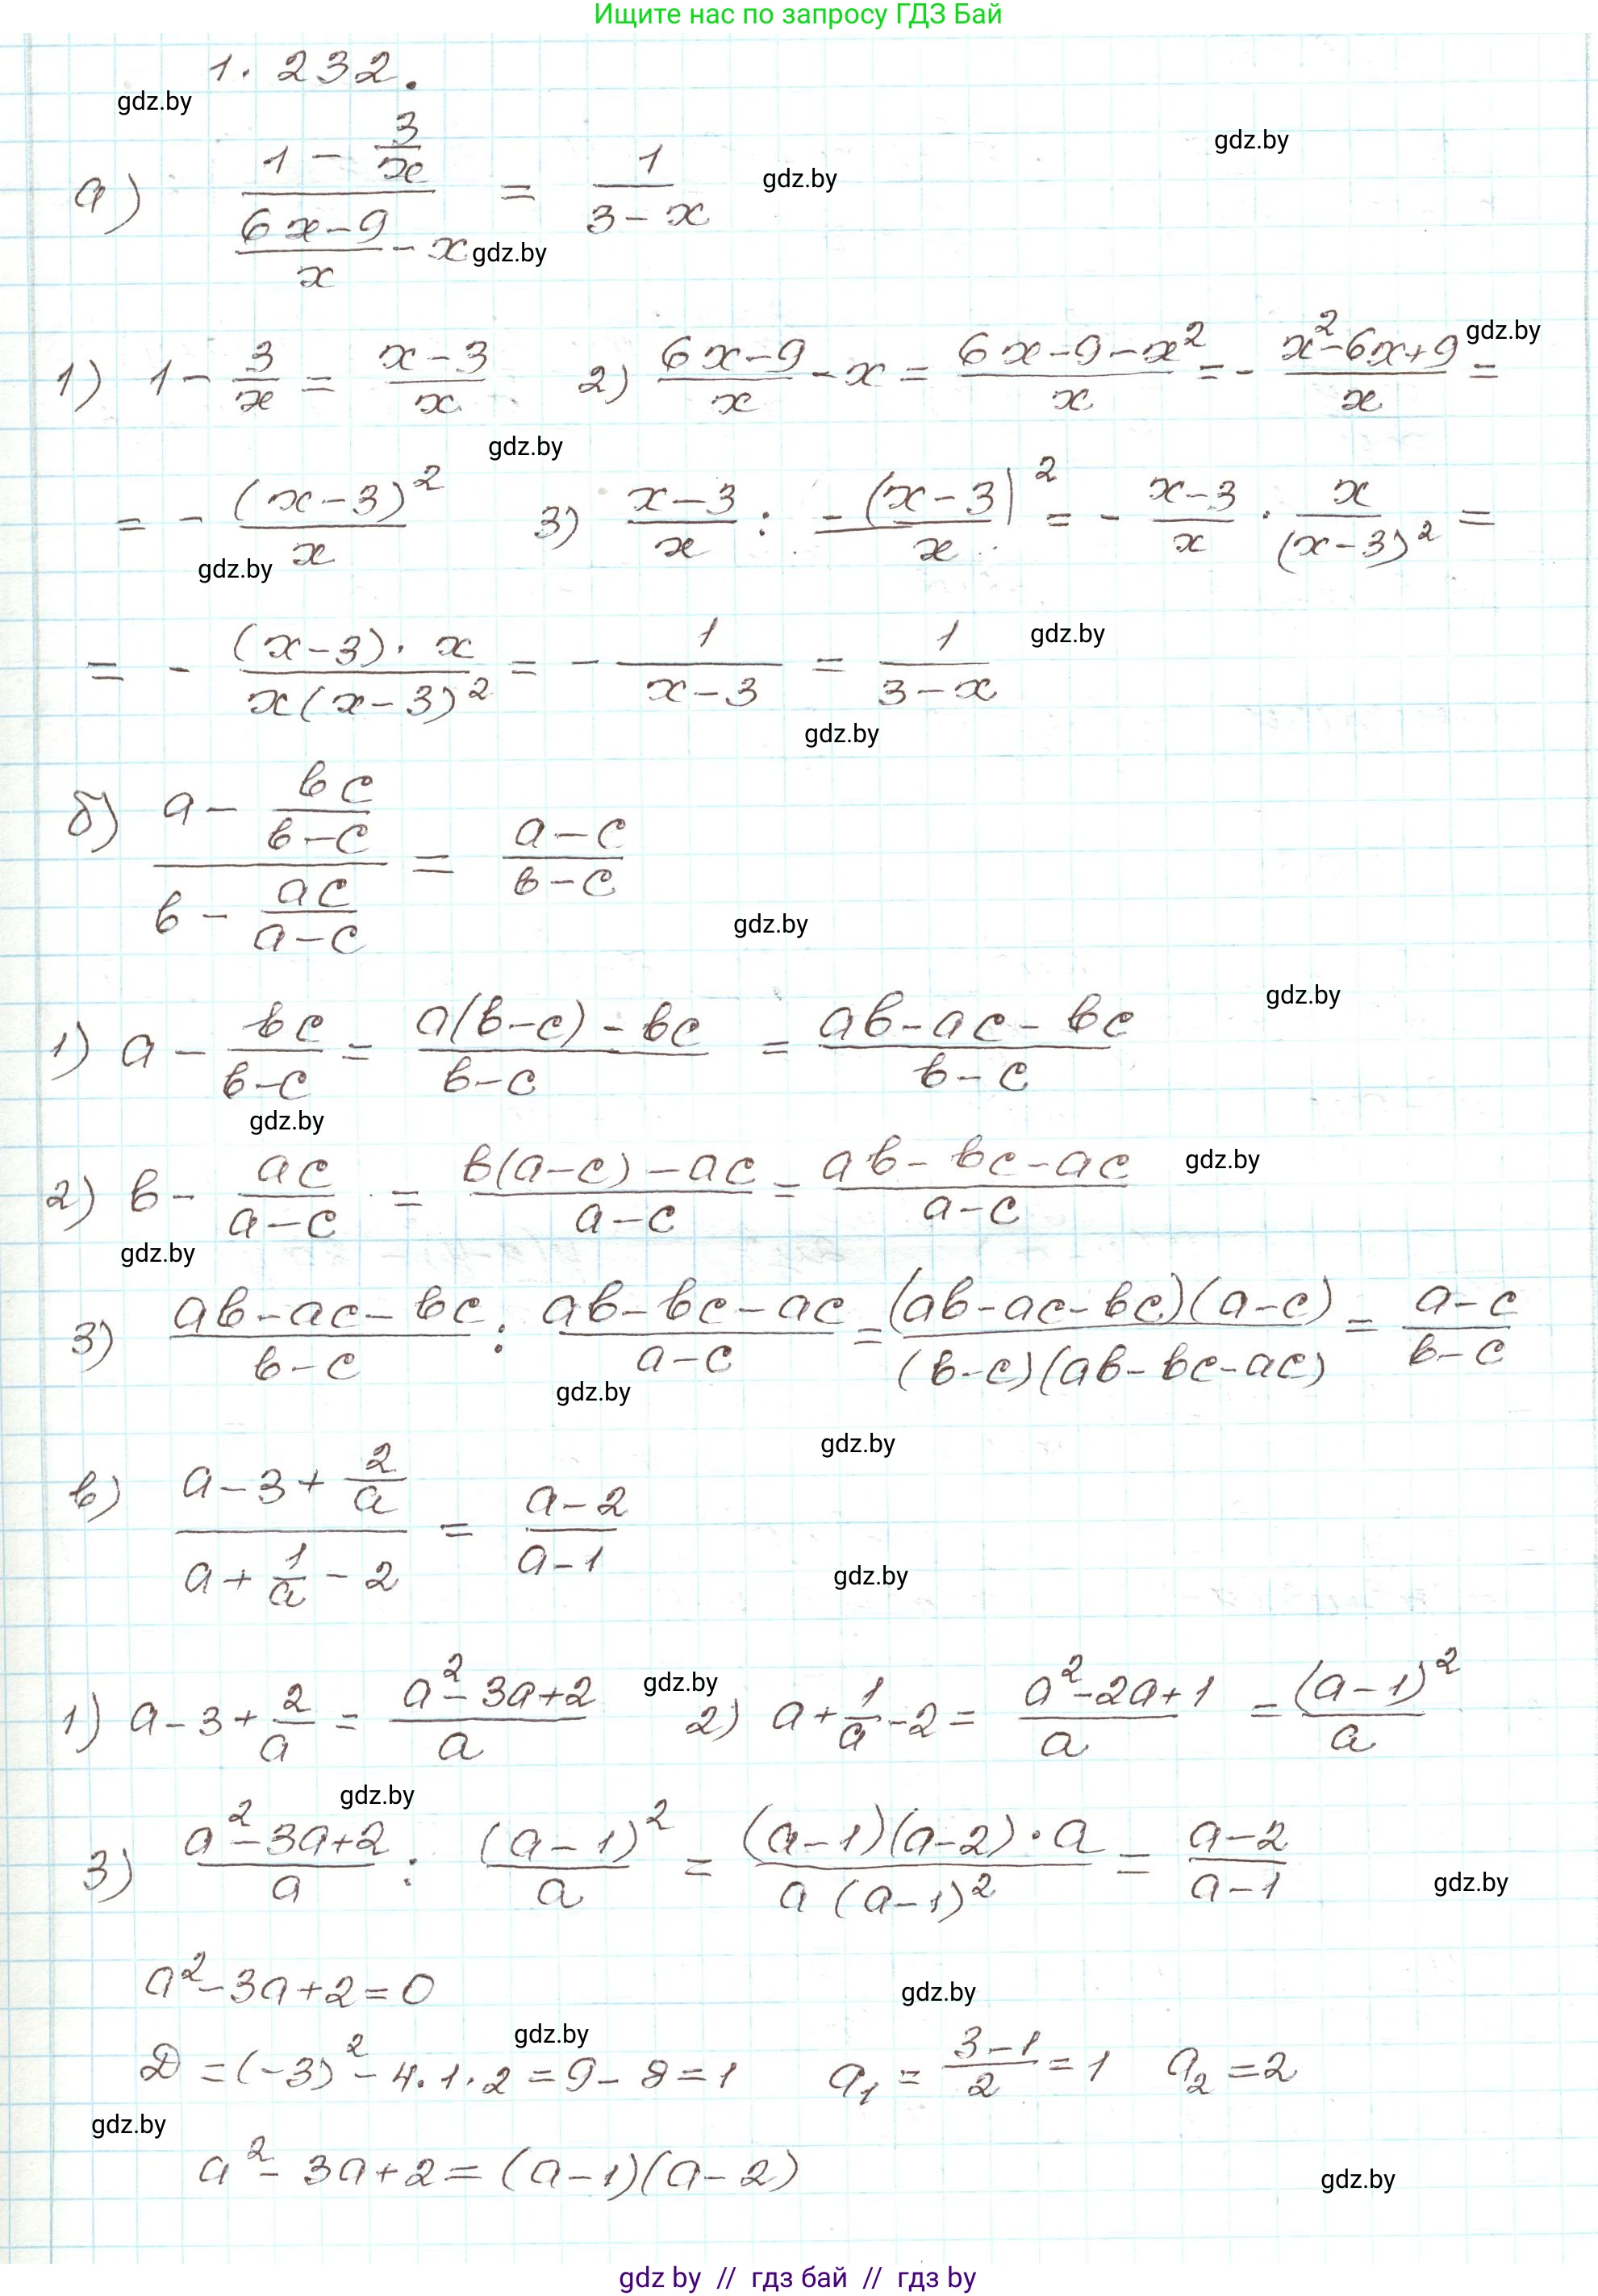 Ищите нас по запросу ГДЗ Бай
1.232.
gdz.by
gdz.by
а) (1 - 3/x) / ((6x-9)/x - x) = 1/(3-x) gdz.by
gdz.by
1) 1 - 3/x = (x-3)/x 2) (6x-9)/x - x = (6x-9-x²)/x = - (x²-6x+9)/x = gdz.by
gdz.by
= - (x-3)²/x 3) (x-3)/x : -(x-3)²/x = - (x-3)/x · x/(x-3)² =
gdz.by
= - ((x-3)·x)/(x(x-3)²) = - 1/(x-3) = 1/(3-x) gdz.by
gdz.by
б) (a - bc/(b-c)) / (b - ac/(a-c)) = (a-c)/(b-c)
gdz.by
gdz.by
1) a - bc/(b-c) = (a(b-c)-bc)/(b-c) = (ab-ac-bc)/(b-c)
gdz.by
2) b - ac/(a-c) = (b(a-c)-ac)/(a-c) = (ab-bc-ac)/(a-c) gdz.by
gdz.by
3) (ab-ac-bc)/(b-c) : (ab-bc-ac)/(a-c) = ((ab-ac-bc)(a-c))/((b-c)(ab-bc-ac)) = (a-c)/(b-c)
gdz.by
gdz.by
в) (a-3+2/a) / (a+1/a-2) = (a-2)/(a-1)
gdz.by
1) a-3+2/a = (a²-3a+2)/a gdz.by 2) a+1/a-2 = (a²-2a+1)/a = (a-1)²/a
gdz.by
3) (a²-3a+2)/a : (a-1)²/a = ((a-1)(a-2)·a)/(a(a-1)²) = (a-2)/(a-1)
gdz.by
a²-3a+2=0
gdz.by
gdz.by
D=(-3)²-4·1·2=9-8=1 a₁=(3-1)/2=1 a₂=2
gdz.by
a²-3a+2=(a-1)(a-2)
gdz.by
gdz by // гдз бай // гдз by